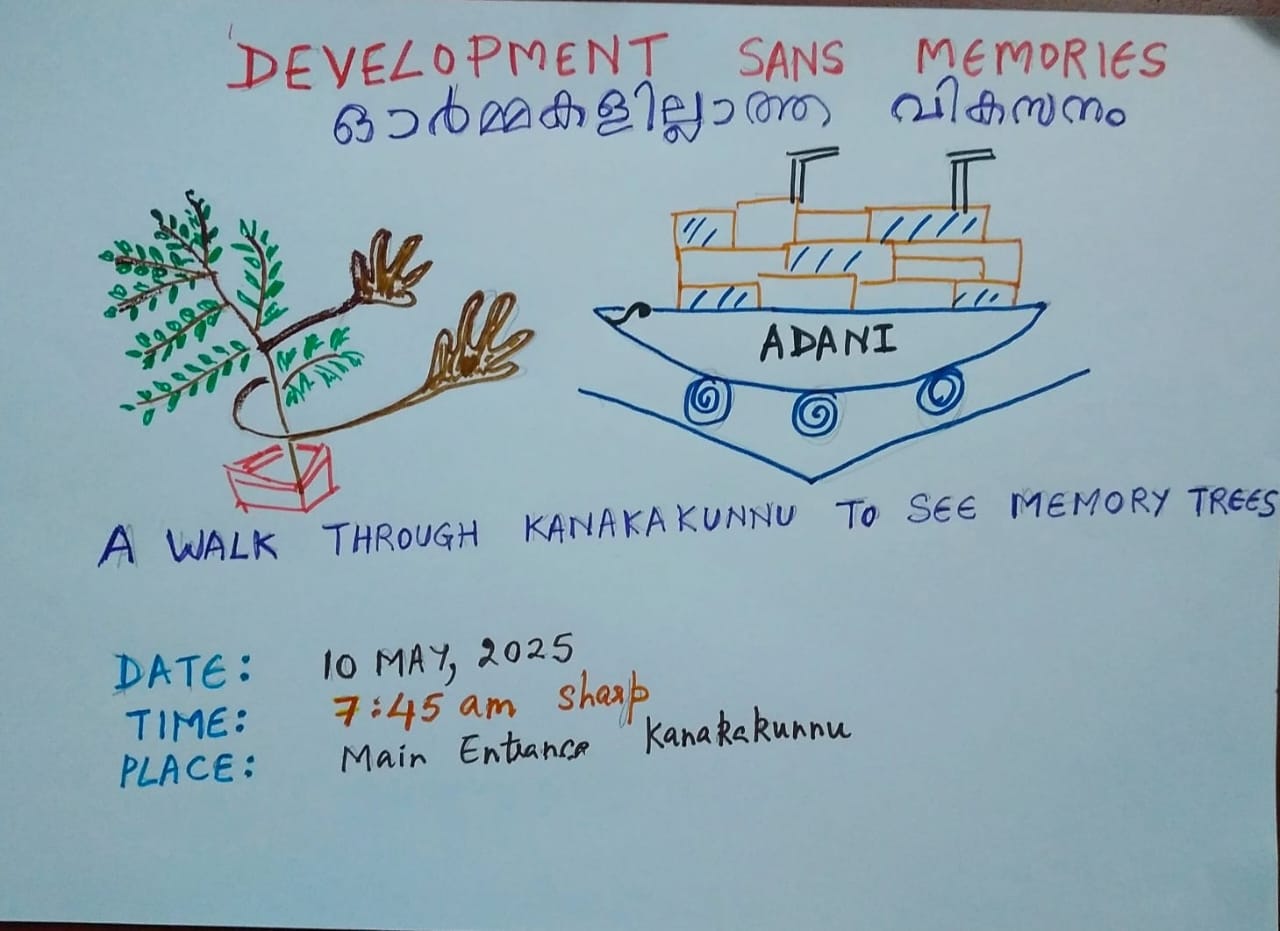 DEVELOPMENT SANS MEMORIES
ഓർമ്മകളില്ലാത്ത വികസനം
ADANI
A WALK THROUGH KANAKAKUNNU TO SEE MEMORY TREES
DATE: 10 MAY, 2025
TIME: 7:45 am sharp
PLACE: Main Entrance Kanakakunnu